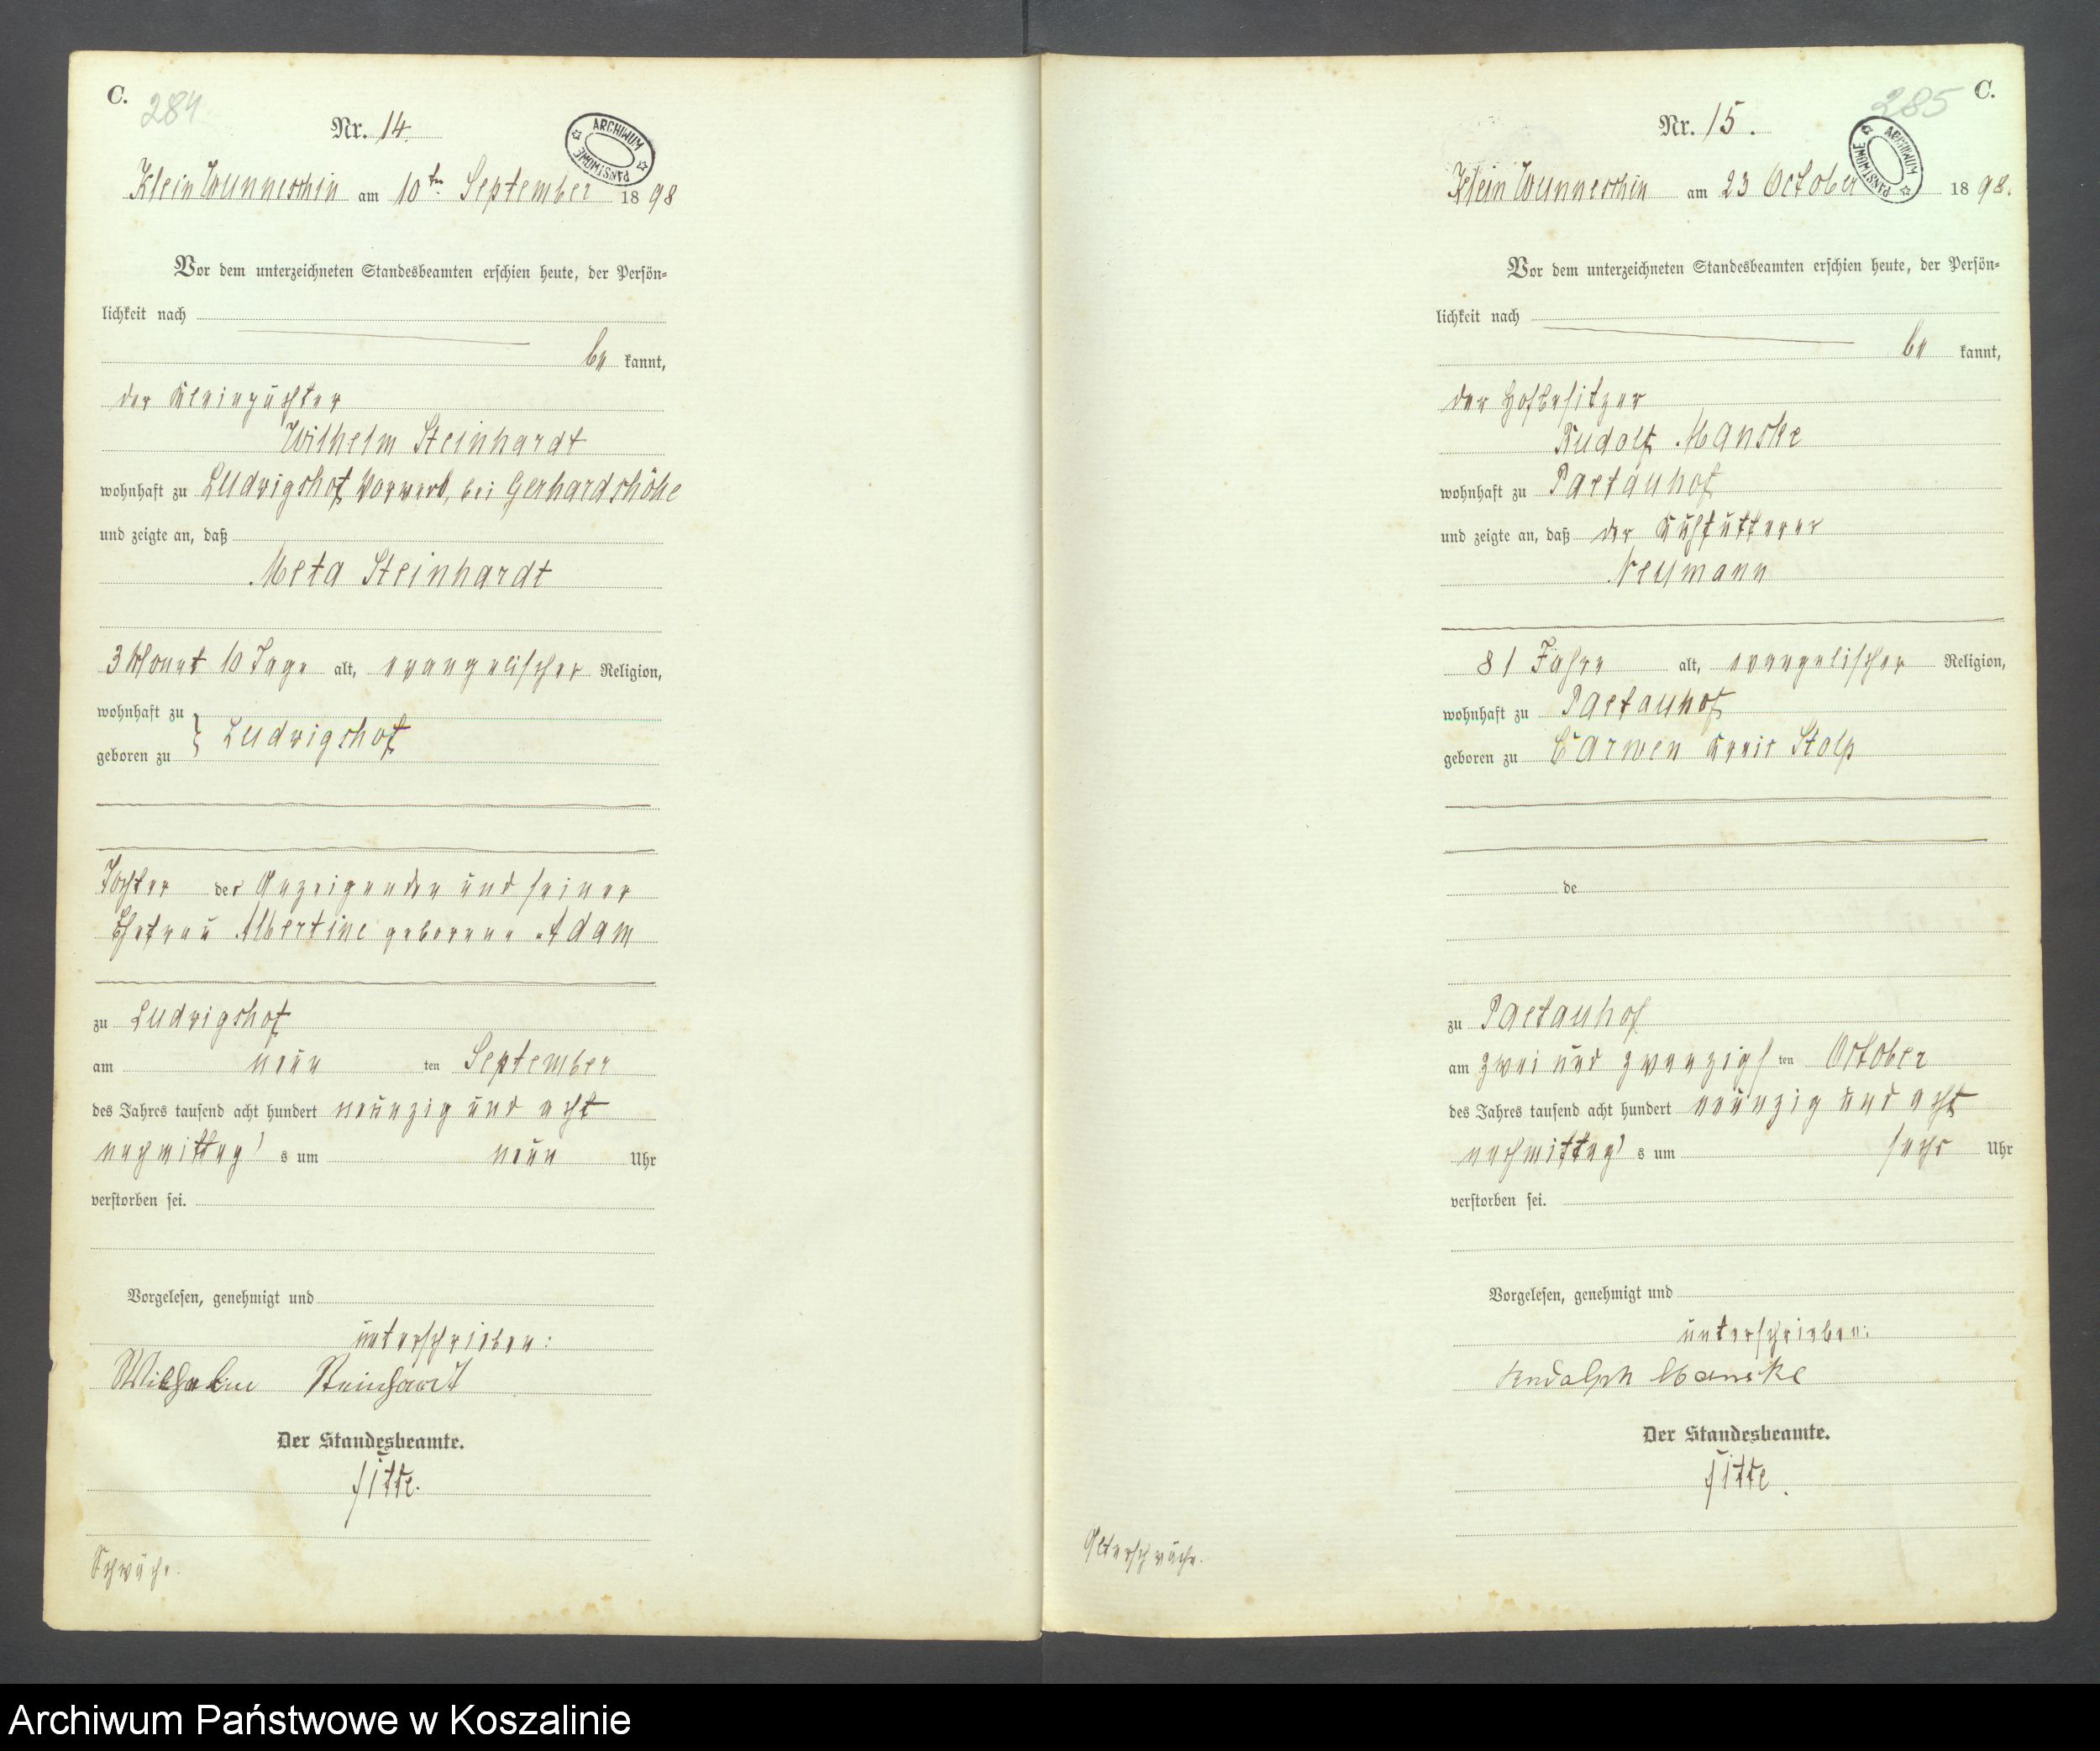 C.
284
Nr. 14.
ARCHIWUM PAŃSTWOWE
Klein Wunneschin am 10ten September 1898
Vor dem unterzeichneten Standesbeamten erschien heute, der Persön-
lichkeit nach
be kannt,
der Kleinpächter
Wilhelm Steinhardt
wohnhaft zu Ludwigshof, Vorwerk, bei Gerhardshöhe
und zeigte an, daß
Meta Steinhardt
3 Monat 10 Tage alt, evangelischer Religion,
wohnhaft zu
geboren zu } Ludwigshof
Tochter des Anzeigenden und seiner
Ehefrau Albertine geborene Adam
zu Ludwigshof
am neun ten September
des Jahres tausend acht hundert neunzig und acht
nachmittags um neun Uhr
verstorben sei.
Vorgelesen, genehmigt und
unterschrieben:
Wilhelm Steinhardt
Der Standesbeamte.
Schwäche.
C.
285
Nr. 15.
ARCHIWUM PAŃSTWOWE
Klein Wunneschin am 23 October 1898.
Vor dem unterzeichneten Standesbeamten erschien heute, der Persön-
lichkeit nach
be kannt,
der Hofbesitzer
Rudolf Manske
wohnhaft zu Paetauhof
und zeigte an, daß der Kuhfutterer
Neumann
81 Jahre alt, evangelischer Religion,
wohnhaft zu Paetauhof
geboren zu Carwen Kreis Stolp
de
zu Paetauhof
am zwei und zwanzigsten October
des Jahres tausend acht hundert neunzig und acht
nachmittags um sechs Uhr
verstorben sei.
Vorgelesen, genehmigt und
unterschrieben:
Rudolph Manske
Der Standesbeamte.
Altersschwäche.
Archiwum Państwowe w Koszalinie